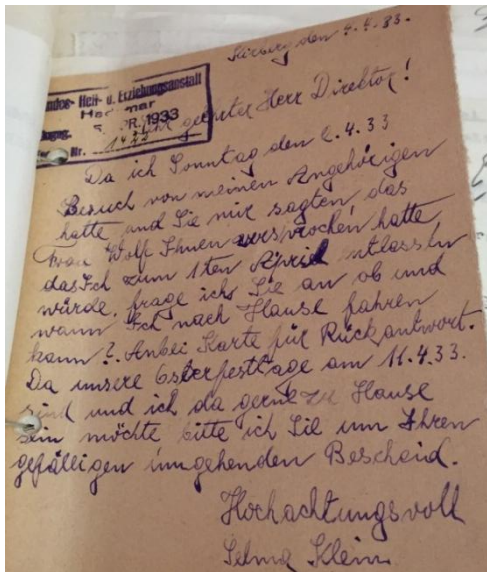 Kirberg den 4.4.33.
Landes-Heil- u. Erziehungsanstalt
Hadamar
5. APR. 1933
Nr.
Sehr geehrter Herr Direktor!
Da ich Sonntag den 2.4.33
Besuch von meinen Angehörigen
hatte und Sie mir sagten das
Frau Wolf Ihnen versprochen hatte,
das Ich zum 1ten April entlassen
würde, frage ich Sie an ob und
wann Ich nach Hause fahren
kann?. Anbei Karte für Rückantwort.
Da unsere Osterfesttage am 11.4.33.
sind und ich da gerne zu Hause
sein möchte bitte ich Sie um Ihren
gefälligen umgehenden Bescheid.
Hochachtungsvoll
Selma Klein